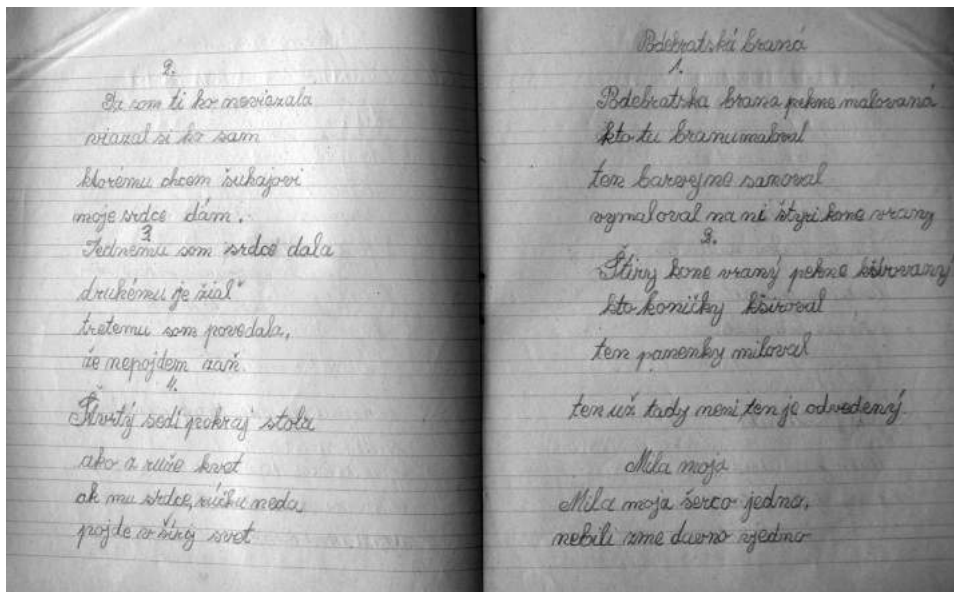 2.
Ja som ti ho neviazala
viazal si ho sam
ktorému chcem šuhajovi
moje srdce dám.
3.
Jednemu som srdce dala
druhému je žial
tretemu som povedala,
že nepojdem zaň.
4.
Štvrtý sedí pokraj stola
ako z ruže kvet
ak mu srdce, rúčku neda
pojde v šírý svet
Pdebratská braná
1.
Pdebratska brana pekne malovaná
kto tu branu maloval
ten barvejne sanoval
vymaloval na ni štyri kone vrany
2.
Štiry kone vraný pekne kširovaný
kto koničky kširoval
ten panenky miloval
ten už tady neni ten je odvedený.
Mila moja
Mila moja šerco jedno,
nebili zme davno vjedno